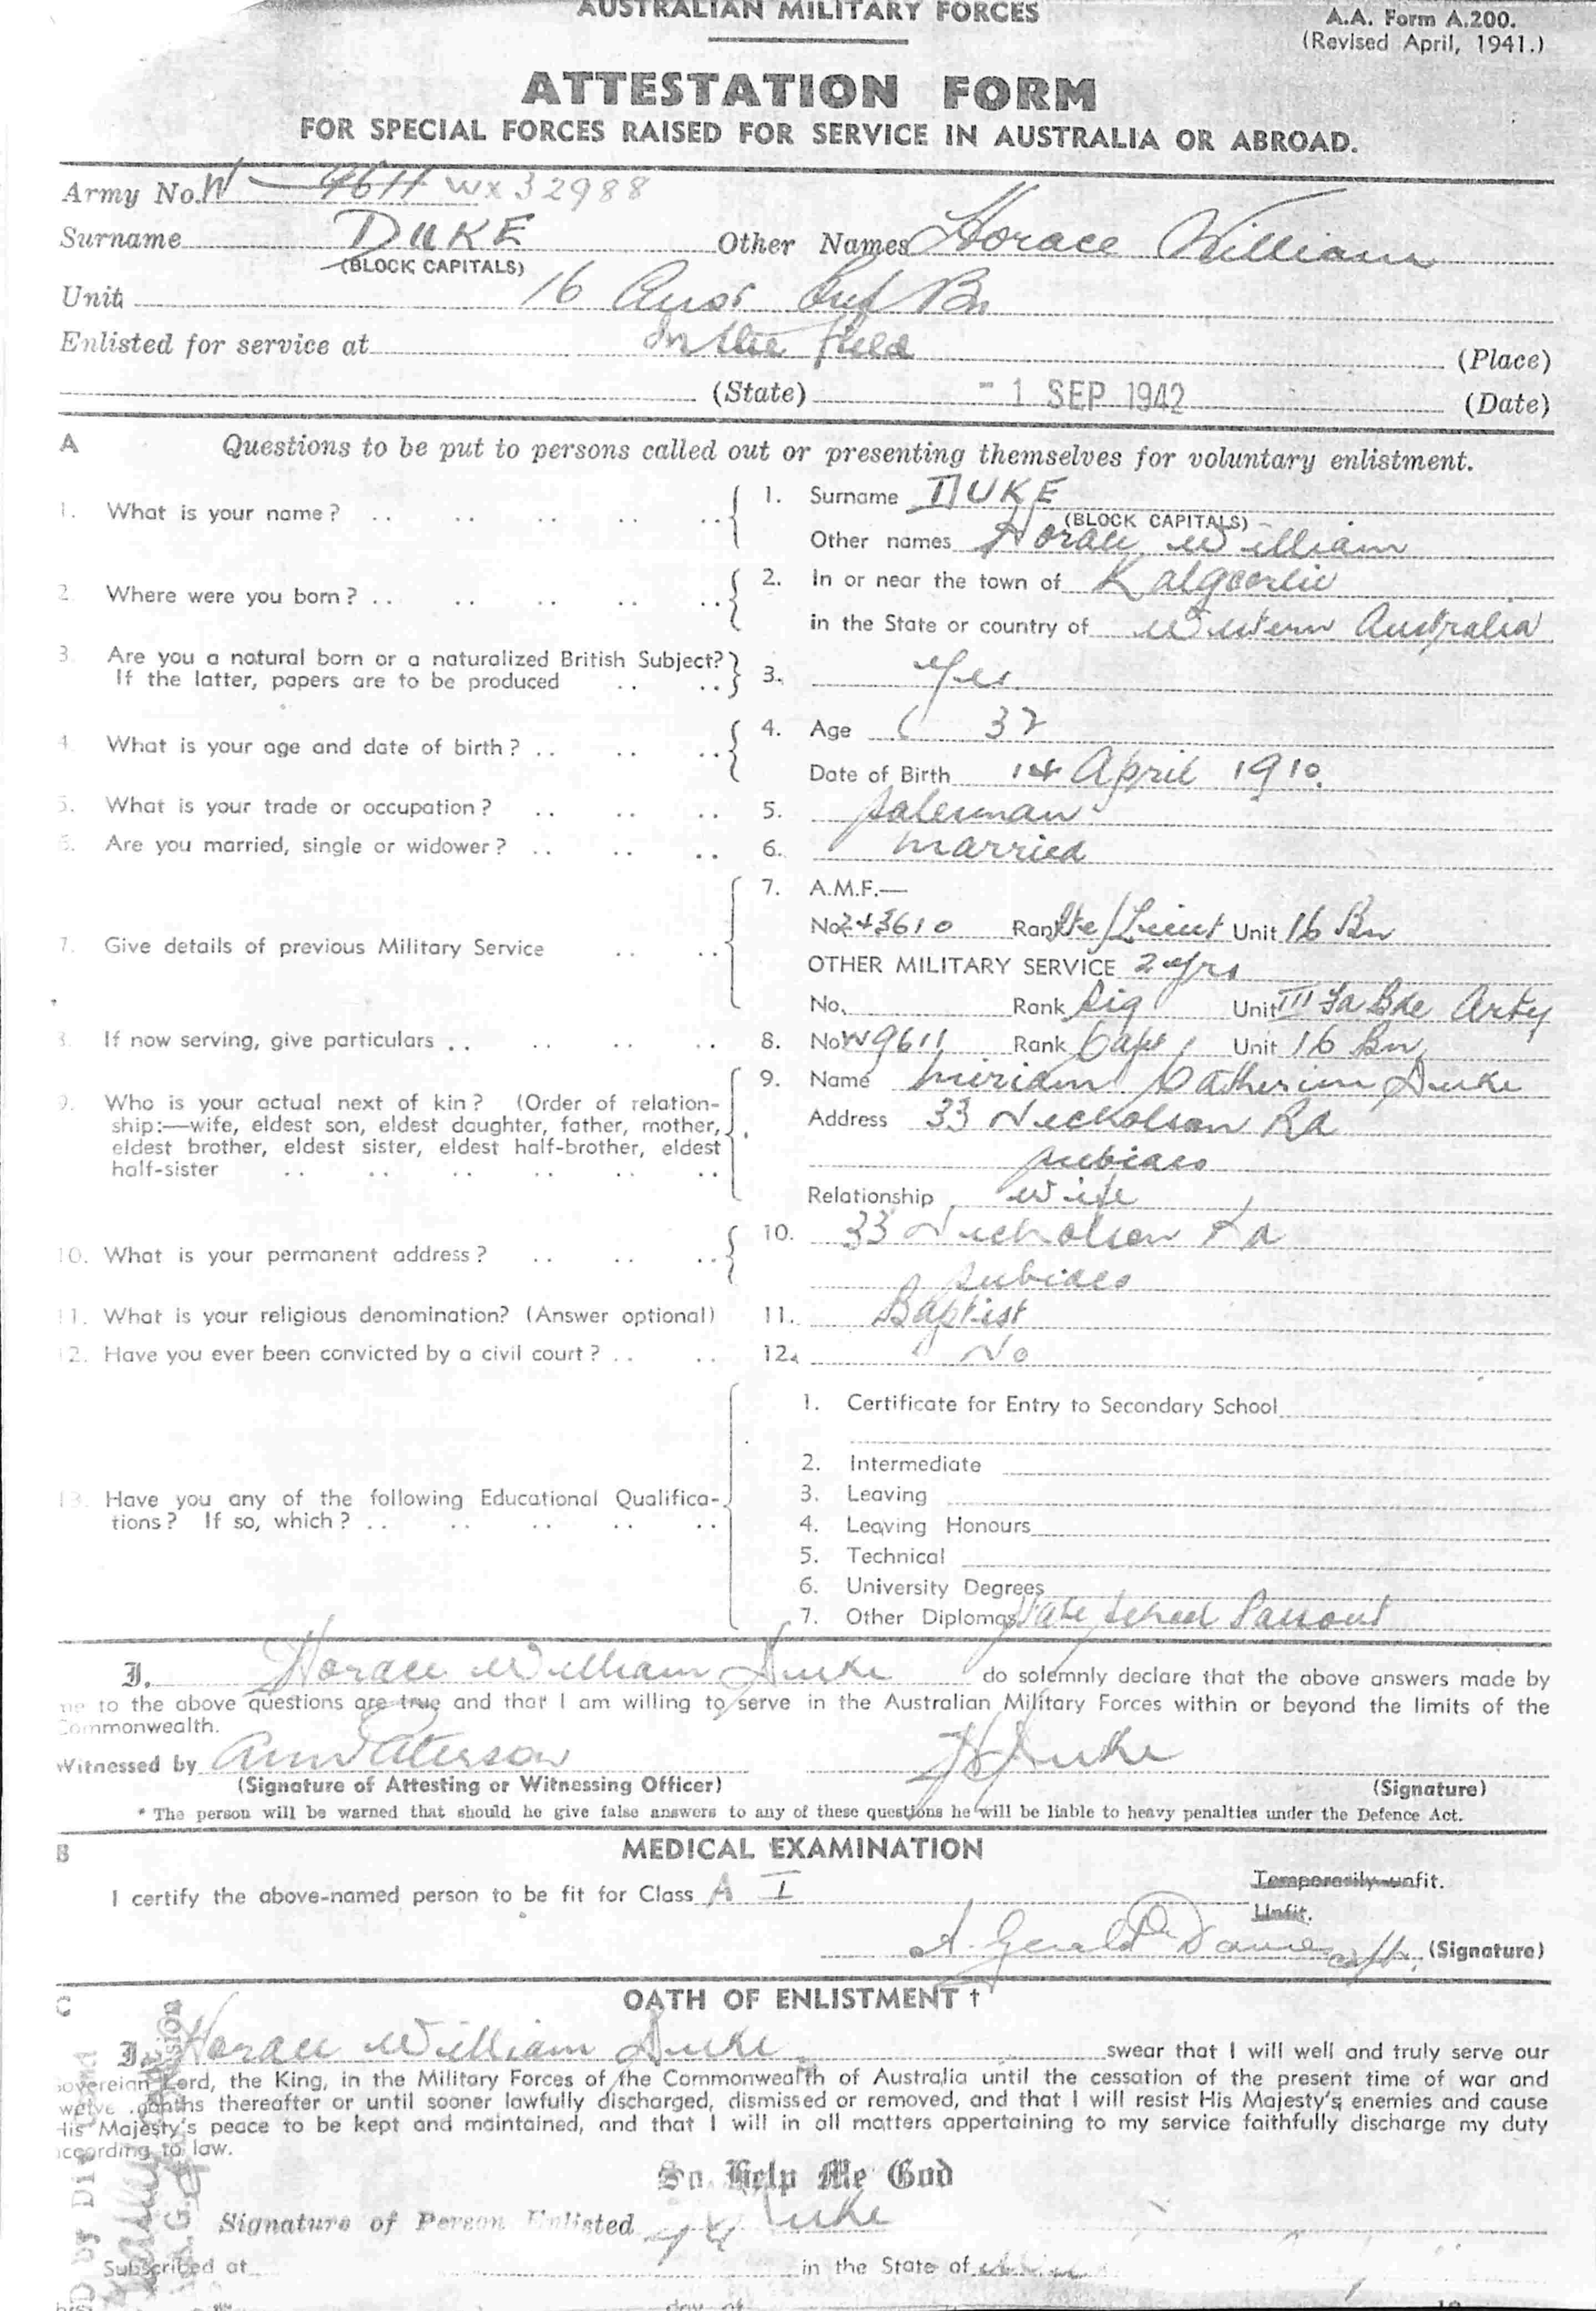 AUSTRALIAN MILITARY FORCES
A.A. Form A.200.
(Revised April, 1941.)
ATTESTATION FORM
FOR SPECIAL FORCES RAISED FOR SERVICE IN AUSTRALIA OR ABROAD.
Army No. W 9611 WX32988
Surname DUKE Other Names Horace William
(BLOCK CAPITALS)
Unit 16 Aust Inf Bn
Enlisted for service at In the field (Place)
(State) - 1 SEP 1942 (Date)
A Questions to be put to persons called out or presenting themselves for voluntary enlistment.
1. What is your name? .. .. .. .. .. 1. Surname DUKE
(BLOCK CAPITALS)
Other names Horace William
2. Where were you born? .. .. .. .. .. 2. In or near the town of Kalgoorlie
in the State or country of Western Australia
3. Are you a natural born or a naturalized British Subject?
If the latter, papers are to be produced .. .. 3. Yes
4. What is your age and date of birth? .. .. .. 4. Age 32
Date of Birth 14 April 1910.
5. What is your trade or occupation? .. .. .. 5. Salesman
6. Are you married, single or widower? .. .. .. 6. Married
7. A.M.F.—
7. Give details of previous Military Service .. .. No. 243610 Rank Pte/Lieut Unit 16 Bn
OTHER MILITARY SERVICE 2 yrs
No. Rank Sig Unit III Fa Bde Arty
8. If now serving, give particulars .. .. .. .. 8. No W9611 Rank Capt Unit 16 Bn
9. Name Miriam Catherine Duke
9. Who is your actual next of kin? (Order of relation-
ship:—wife, eldest son, eldest daughter, father, mother, Address 33 Nicholson Rd
eldest brother, eldest sister, eldest half-brother, eldest
half-sister .. .. .. .. .. .. Subiaco
Relationship Wife
10. What is your permanent address? .. .. .. 10. 33 Nicholson Rd
Subiaco
11. What is your religious denomination? (Answer optional) 11. Baptist
12. Have you ever been convicted by a civil court? .. .. 12. No
1. Certificate for Entry to Secondary School
2. Intermediate
13. Have you any of the following Educational Qualifica- 3. Leaving
tions? If so, which? .. .. .. .. .. 4. Leaving Honours
5. Technical
6. University Degrees
7. Other Diplomas State School Passout
I, Horace William Duke do solemnly declare that the above answers made by
me to the above questions are true and that I am willing to serve in the Australian Military Forces within or beyond the limits of the
Commonwealth.
Witnessed by Paterson HDuke
(Signature of Attesting or Witnessing Officer) (Signature)
* The person will be warned that should he give false answers to any of these questions he will be liable to heavy penalties under the Defence Act.
B MEDICAL EXAMINATION
I certify the above-named person to be fit for Class A I Temporarily unfit.
Unfit.
A. Gerald Davies Capt. (Signature)
C OATH OF ENLISTMENT †
I, Horace William Duke swear that I will well and truly serve our
Sovereign Lord, the King, in the Military Forces of the Commonwealth of Australia until the cessation of the present time of war and
twelve months thereafter or until sooner lawfully discharged, dismissed or removed, and that I will resist His Majesty's enemies and cause
His Majesty's peace to be kept and maintained, and that I will in all matters appertaining to my service faithfully discharge my duty
according to law.
So Help Me God
Signature of Person Enlisted Duke
Subscribed at in the State of
day of 19